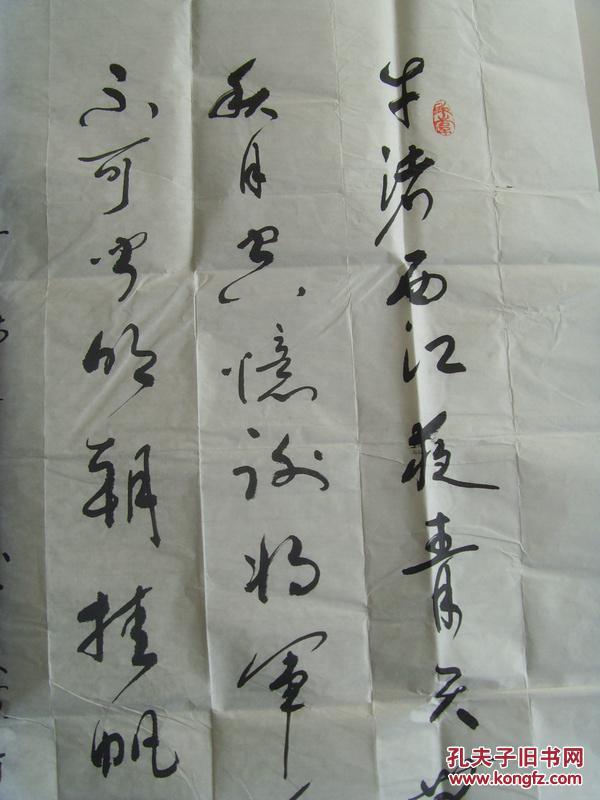 牛渚西江夜青天
秋月空憶谢将軍
不可闻明朝挂帆
孔夫子旧书网
www.kongfz.com